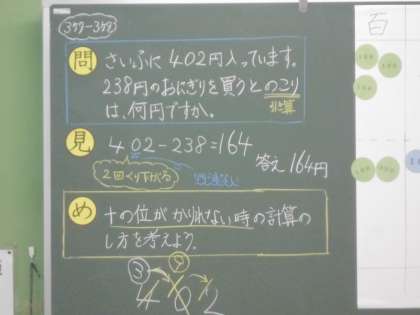 3ケタ-3ケタ
問 さいふに402円入っています。
238円のおにぎりを買うとのこり
は、何円ですか。
引き算
見 402-238=164
答え 164円
2回くり下がる
め 十の位がかりれない時の計算の
し方を考えよう。
3 9
402
百